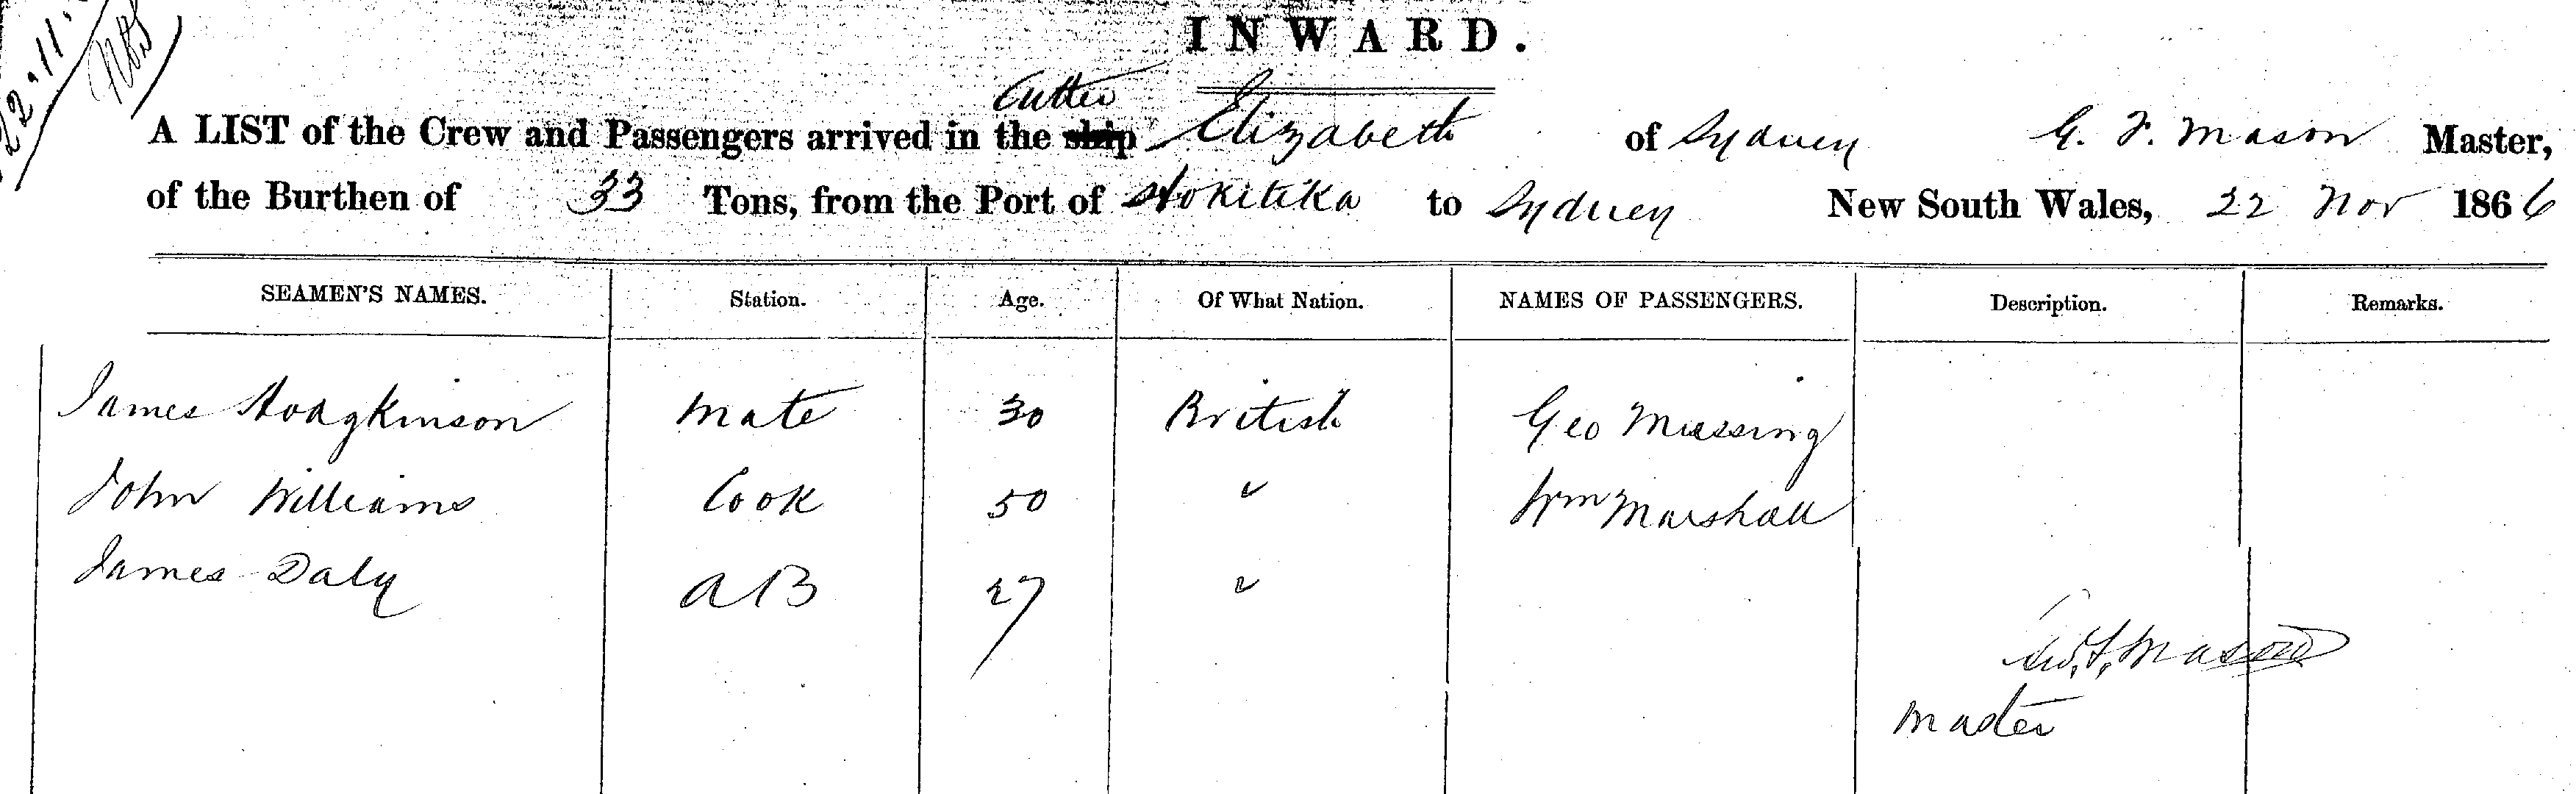 22.11.
INWARD.
Cutter
A LIST of the Crew and Passengers arrived in the ship Elizabeth of Sydney G. F. Mason Master,
of the Burthen of 33 Tons, from the Port of Hokitika to Sydney New South Wales, 22 Nov 1866
SEAMEN'S NAMES. Station. Age. Of What Nation. NAMES OF PASSENGERS. Description. Remarks.
James Hodgkinson Mate 30 British Geo Missing
John Williams Cook 50 " Wm Marshall
James Daly AB 27 "
Geo. F. Mason
Master